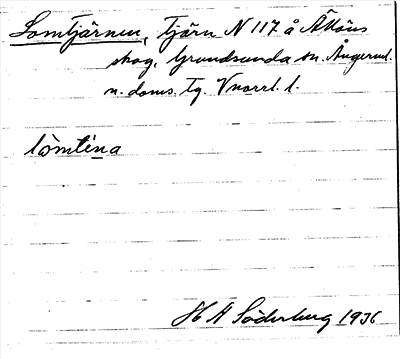 Lomtjärnen, tjärn N 117 å Äknäs
skog, Grundsunda sn. Ångerml.
n. doms. tg. Vnorrl. l.
lòmtèna
H A Söderberg 1936